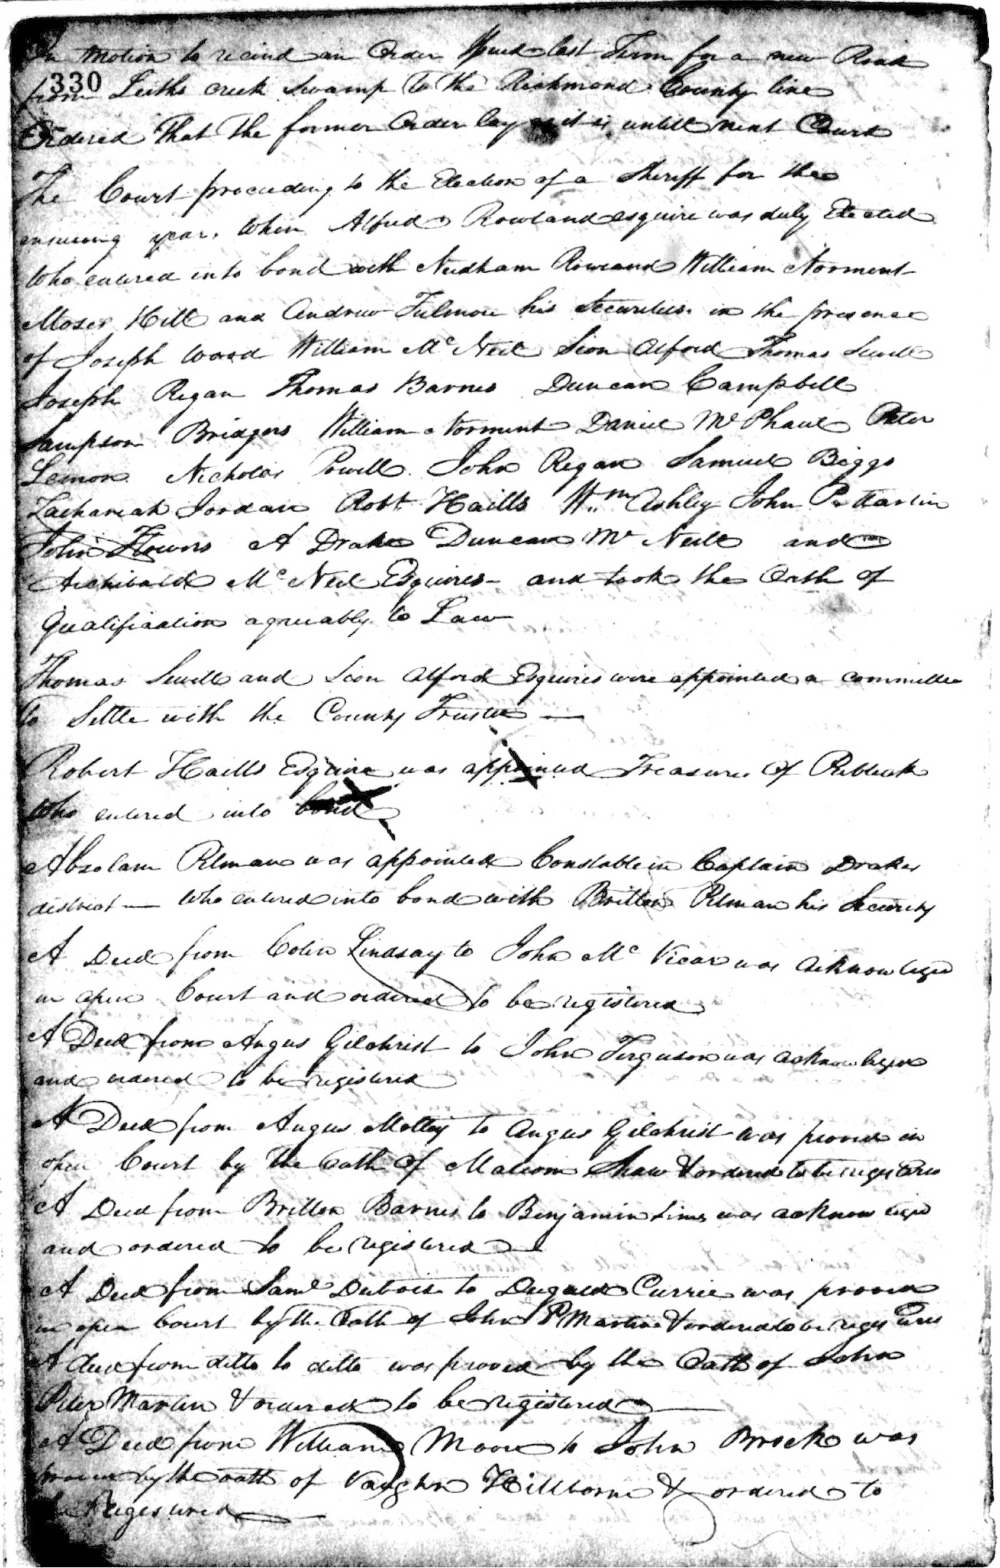 On motion to recind an Order Issued last Term for a new Road
330
from Leiths creek Swamp to the Richmond County line
Ordered That the former Order lay as it is untill next Court
The Court proceeding to the Election of a Sheriff for the
ensueing year, when Alfred Rowland esquire was duly Elected
Who entered into bond with Needham Rowland William Norment
Moses Hill and Andrew Fulmore his Securities in the presence
of Joseph Wood William Mc Neil Sion Alford Thomas Sewell
Joseph Regan Thomas Barnes Duncan Campbell
Sampson Bridgers William Norment Daniel Mc Phaul Peter
Lemon Nicholas Powell John Regan Samuel Biggs
Zachariah Jordan Robt Hails Wm Ashley John P Martin
John Flowers A Drake Duncan Mc Neill and
Archibald Mc Neil Esquires - and took the Oath of
Qualification agreeably to Law
Thomas Sewell and Sion Alford Esquires were appointed a committee
to Settle with the County Trustee —
Robert Hails Esquire was appointed Treasurer of Publick
Who entered into bond
Absolam Pitman was appointed Constable in Captain Drakes
district — Who entered into bond with Britton Pitman his Security
A Deed from Colin Lindsay to John Mc Vicar was acknowleged
in open Court and ordered to be registered
A Deed from Angus Gilchrist to John Ferguson was acknowleged
and ordered to be registered
A Deed from Angus to Angus Gilchrist was proved in
open Court by the Oath of Malcom Shaw & ordered to be registered
A Deed from Britton Barnes to Benjamin Sims was acknowleged
and ordered to be registered
A Deed from Saml Dubois to Dugald Currie was proved
in open Court by the Oath of John P Martin & ordered to be registered
A deed from ditto to ditto was proved by the Oath of John
Peter Martin & ordered to be registered —
A Deed from William Moore to John Brock was
proven by the oath of Vaughn Hillborne & ordered to
be Registered —